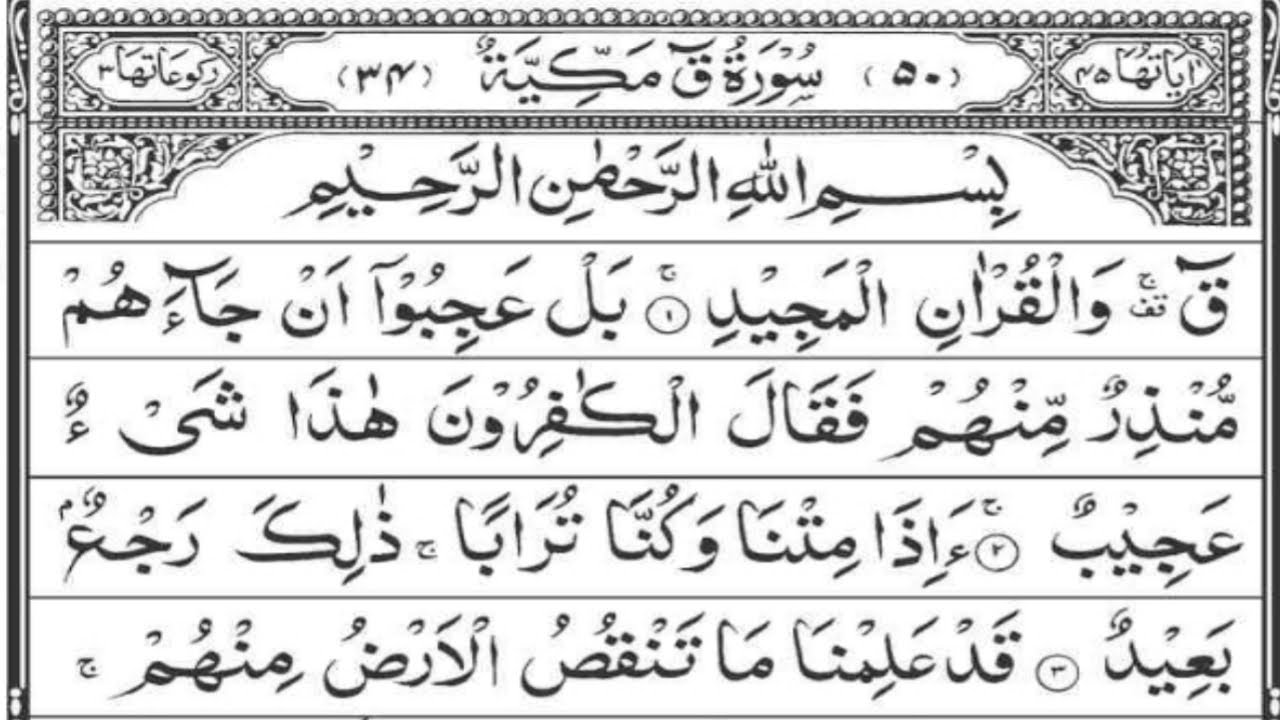 اٰيَاتُهَا ٤٥ (٥٠) سُوْرَةُ قٓ مَكِّيَّةٌ (٣٤) رُكُوعَاتُهَا ٣
بِسْمِ اللّٰهِ الرَّحْمٰنِ الرَّحِيْمِ
قٓ ۚ قف وَالْقُرْاٰنِ الْمَجِيْدِ ۚ ① بَلْ عَجِبُوْۤا اَنْ جَآءَهُمْ
مُّنْذِرٌ مِّنْهُمْ فَقَالَ الْكٰفِرُوْنَ هٰذَا شَیْءٌ
عَجِيْبٌ ۚ ② ءَاِذَا مِتْنَا وَكُنَّا تُرَابًا ۚ ذٰلِكَ رَجْعٌۢ
بَعِيْدٌ ③ قَدْ عَلِمْنَا مَا تَنْقُصُ الْاَرْضُ مِنْهُمْ ۚ